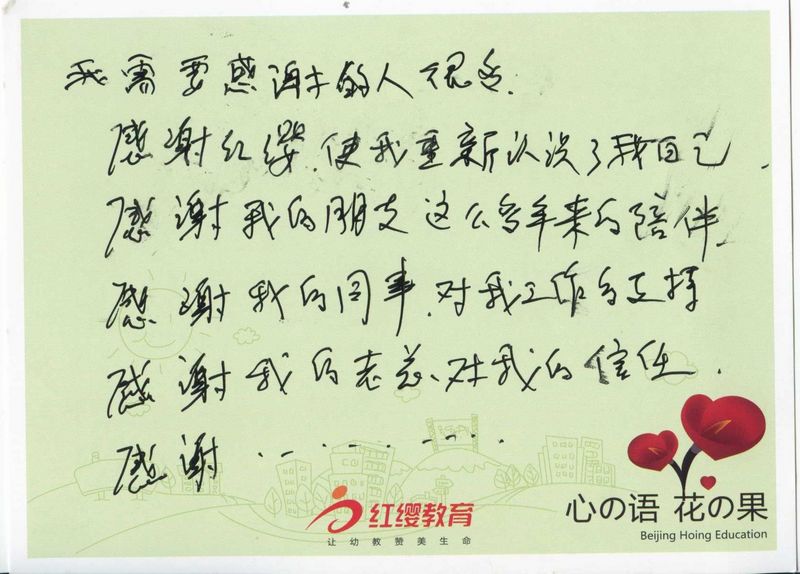 我需要感谢的人很多.
感谢红缨,使我重新认识了我自己.
感谢我的朋友这么多年来的陪伴.
感谢我的同事.对我工作的支持
感谢我的老总、对我的信任.
感谢............
红缨教育
让幼教赞美生命
心の语 花の果
Beijing Hoing Education